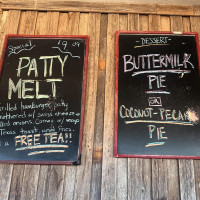 Special $9.09
PATTY
MELT
Grilled hamburger patty
smothered w/ swiss cheese &
grilled onions. Comes w/ soup
Texas toast, and fries.
FREE TEA!!
- DESSERT -
BUTTERMILK
PIE
OR
COCONUT-PECAN
PIE